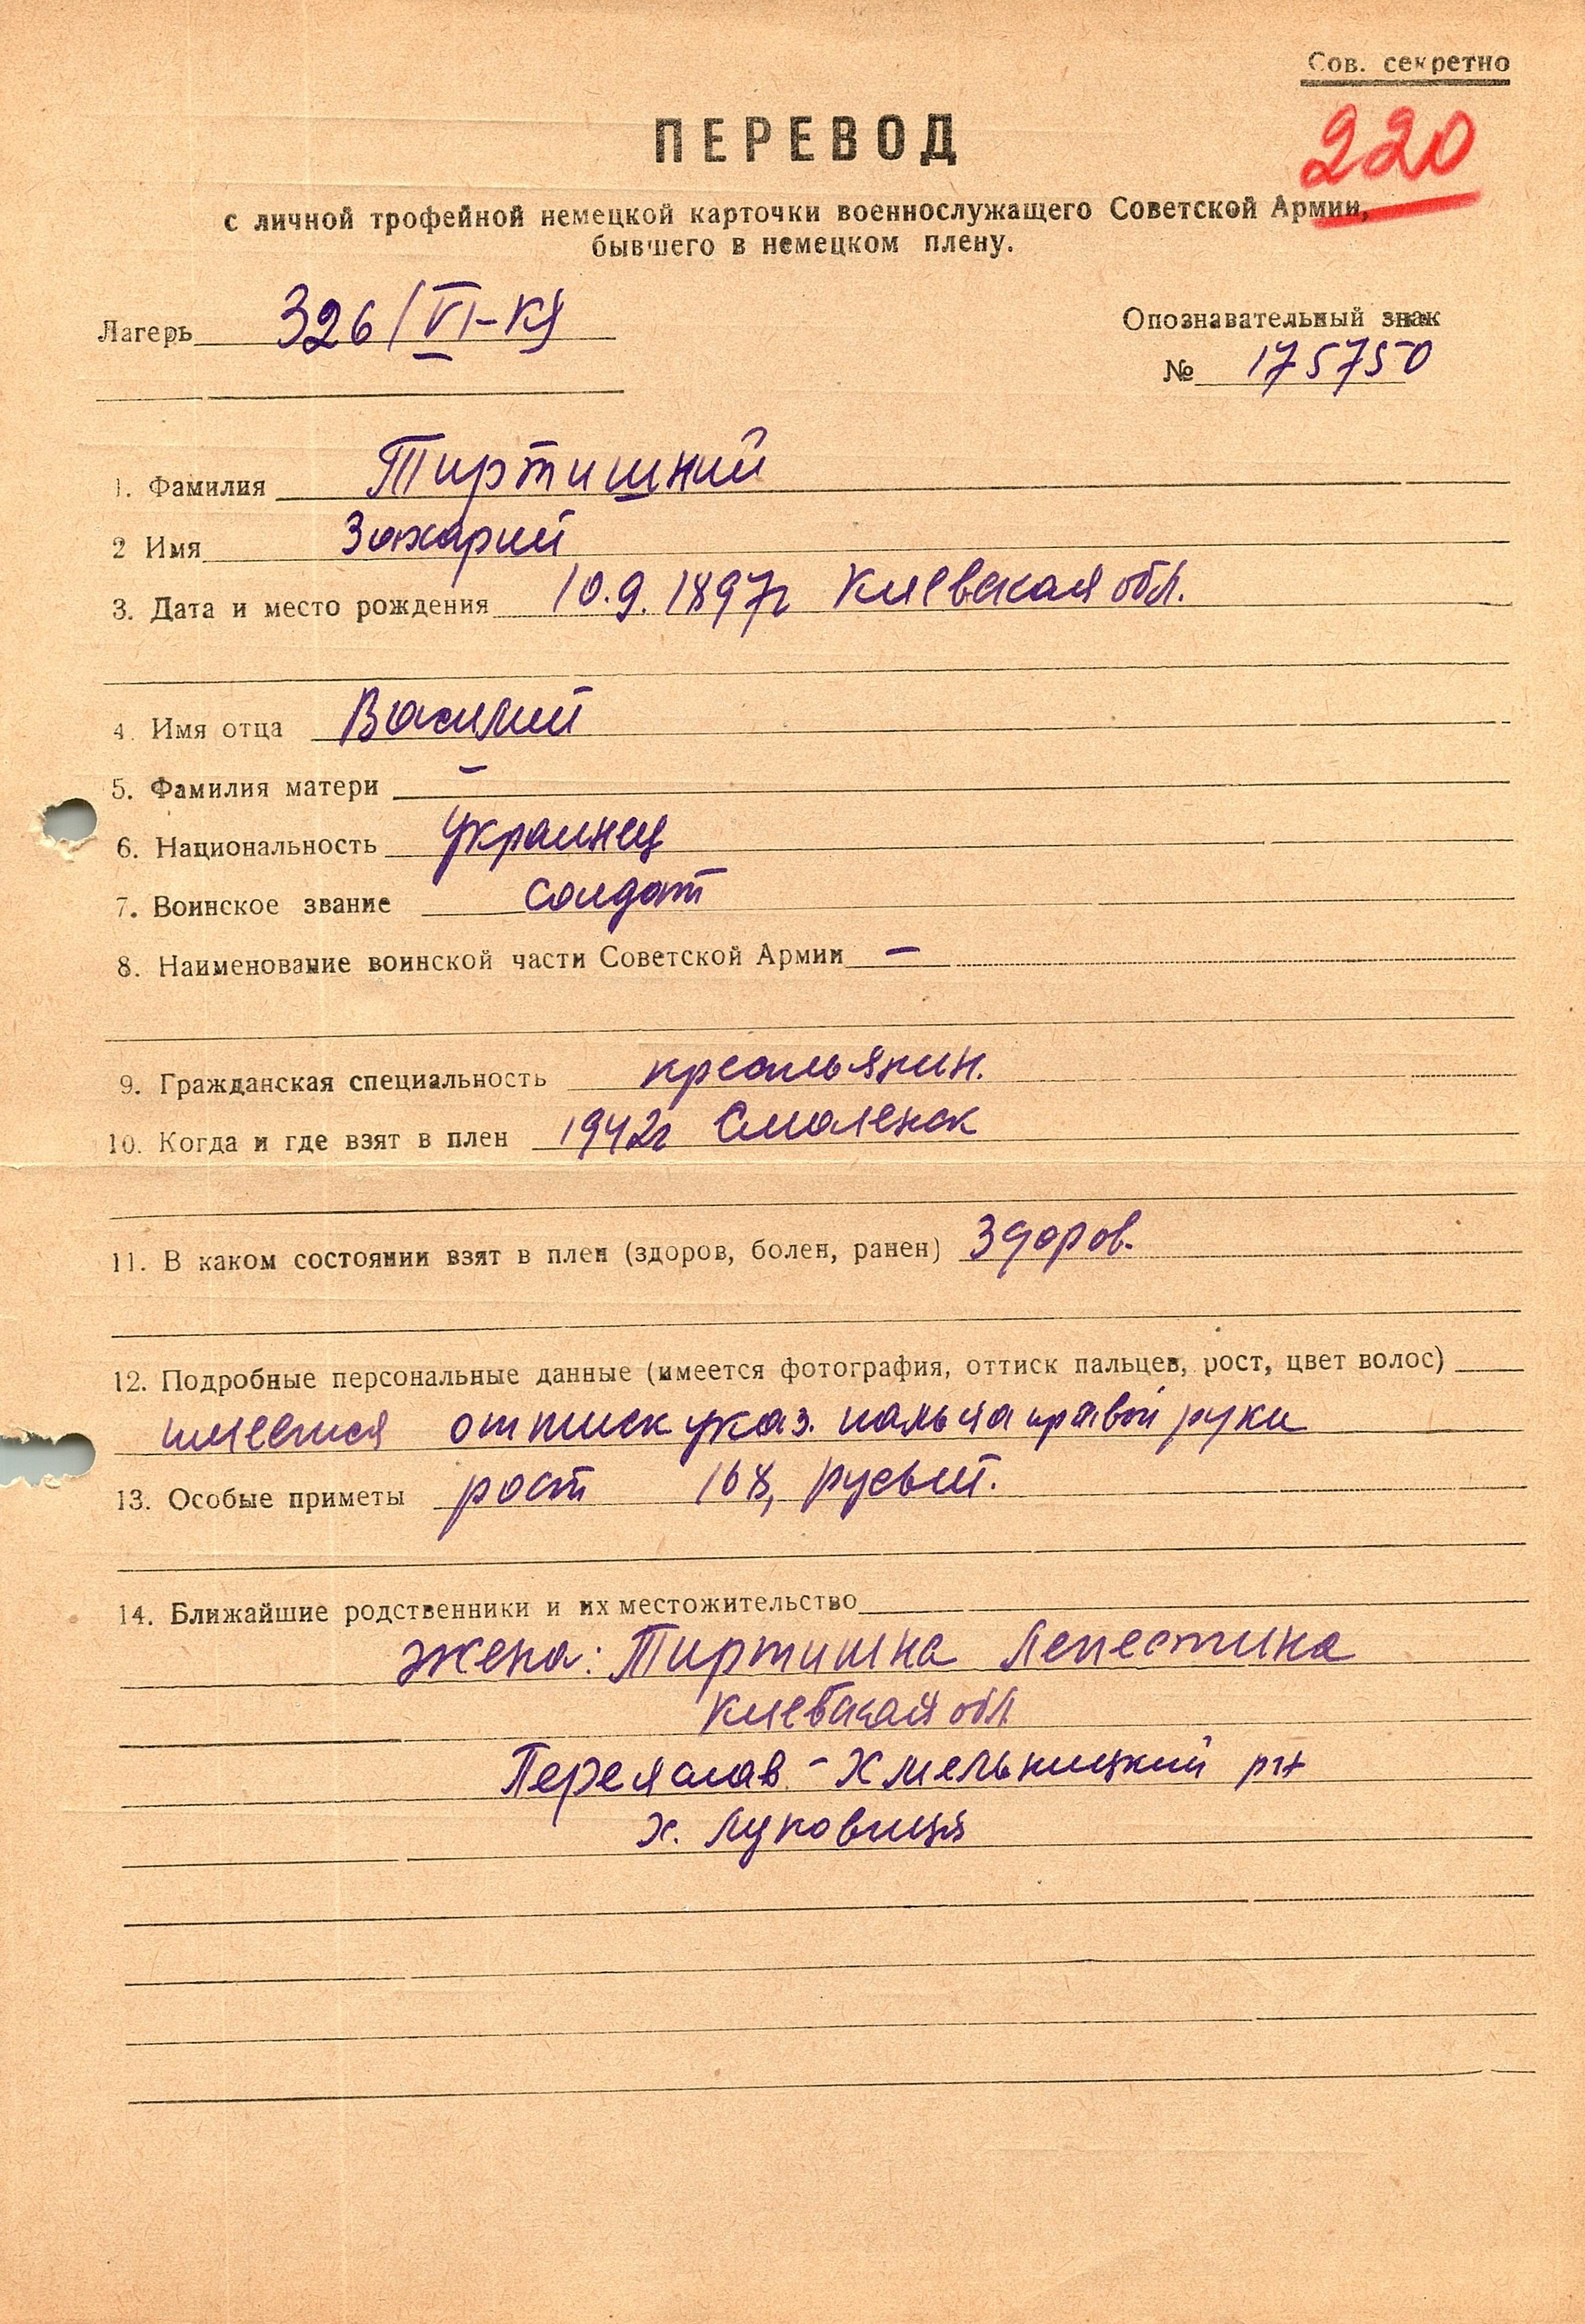 Сов. секретно
220
ПЕРЕВОД
с личной трофейной немецкой карточки военнослужащего Советской Армии,
бывшего в немецком плену.
Лагерь 326/VI-К
Опознавательный знак
№ 175750
1. Фамилия Тиртишний
2 Имя Захарий
3. Дата и место рождения 10.9.1897г Киевская обл.
4. Имя отца Василий
5. Фамилия матери –
6. Национальность украинец
7. Воинское звание солдат
8. Наименование воинской части Советской Армии –
9. Гражданская специальность крестьянин.
10. Когда и где взят в плен 1942г Смоленск
11. В каком состоянии взят в плен (здоров, болен, ранен) здоров.
12. Подробные персональные данные (имеется фотография, оттиск пальцев, рост, цвет волос)
имеется оттиск указ. пальца правой руки
13. Особые приметы рост 168, русый.
14. Ближайшие родственники и их местожительство
жена: Тиртишна Лепестина
Киевская обл
Переяслав-Хмельницкий р-н
х. Луковица